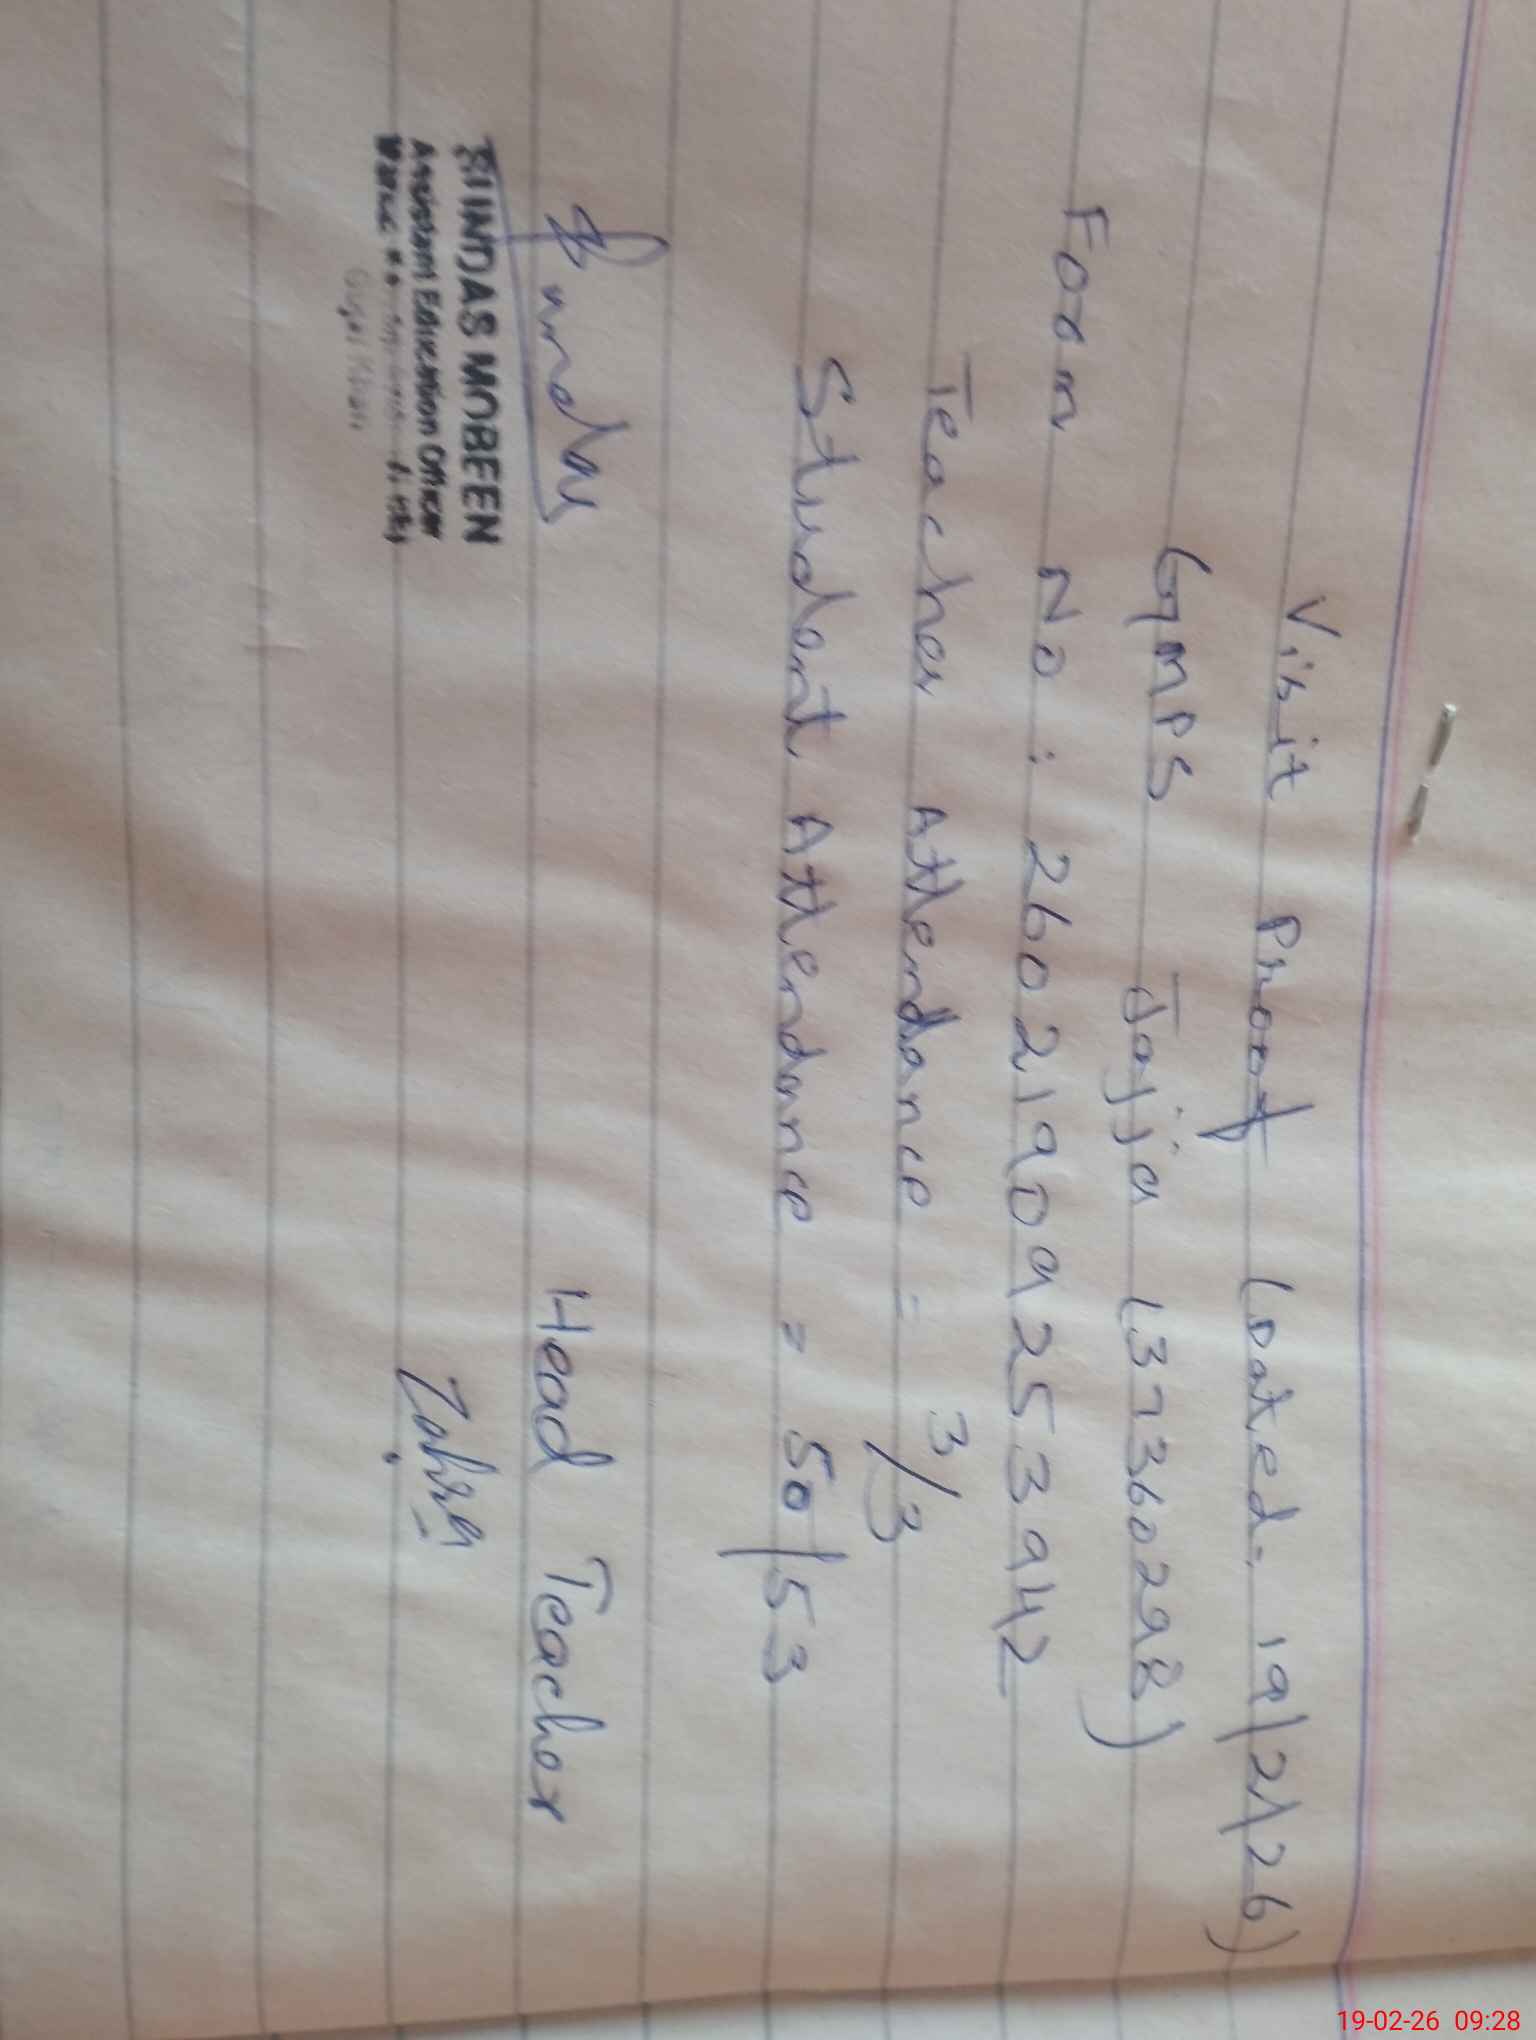 Visit Proof (Dated: 19/2/26)
GMPS Jajja (37360298)
Form No: 26021909253942
Teacher Attendance = 3/3
Student Attendance = 50/53
Head Teacher
Zahra
MOBEEN
Assistant Education Officer
19-02-26 09:28